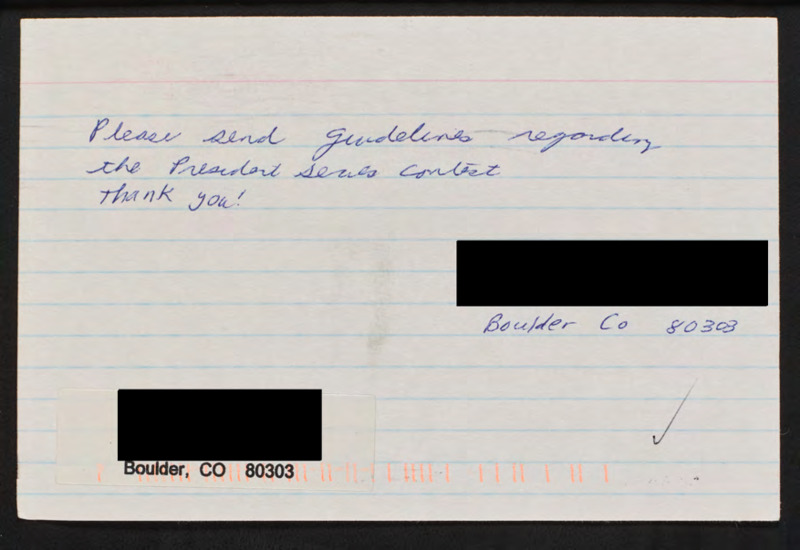 Please send guidelines regarding
the President Series Contest
Thank you!
Boulder Co 80303
Boulder, CO 80303